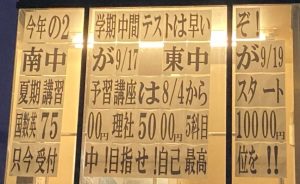 今年の2学期中間テストは早いぞ!
南中が9/17 東中が9/19
夏期講習 予習講座は8/4からスタート
国数英7500円 理社5000円 5科目10000円
只今受付中!目指せ!自己最高位を!!